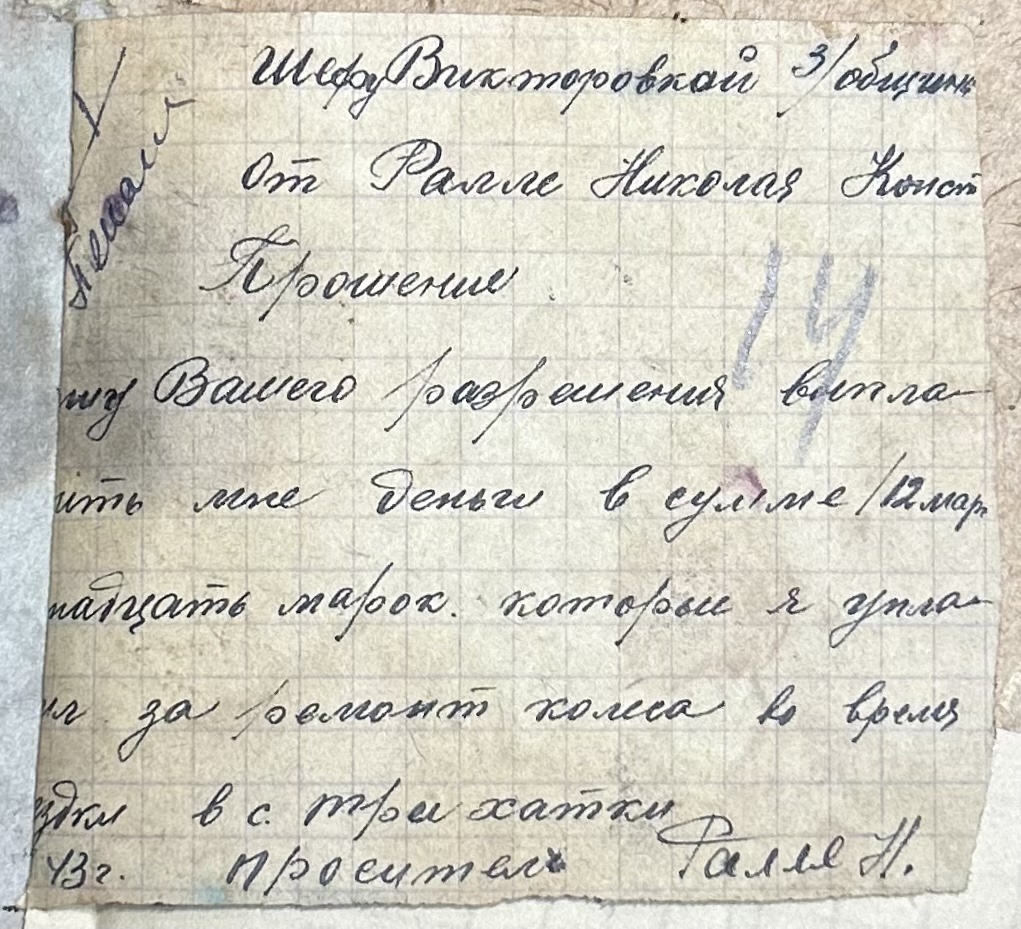 Шефу Викторовкой З/общины
от Ралле Николая Конст
Прошение
14
шу Вашего разрешения выпла-
ить мне деньги в сумме /12 мар
надцать марок. которые я упла-
ил за ремонт колеса во время
ездки в с. три хатки
43г. проситель Ралле Н.